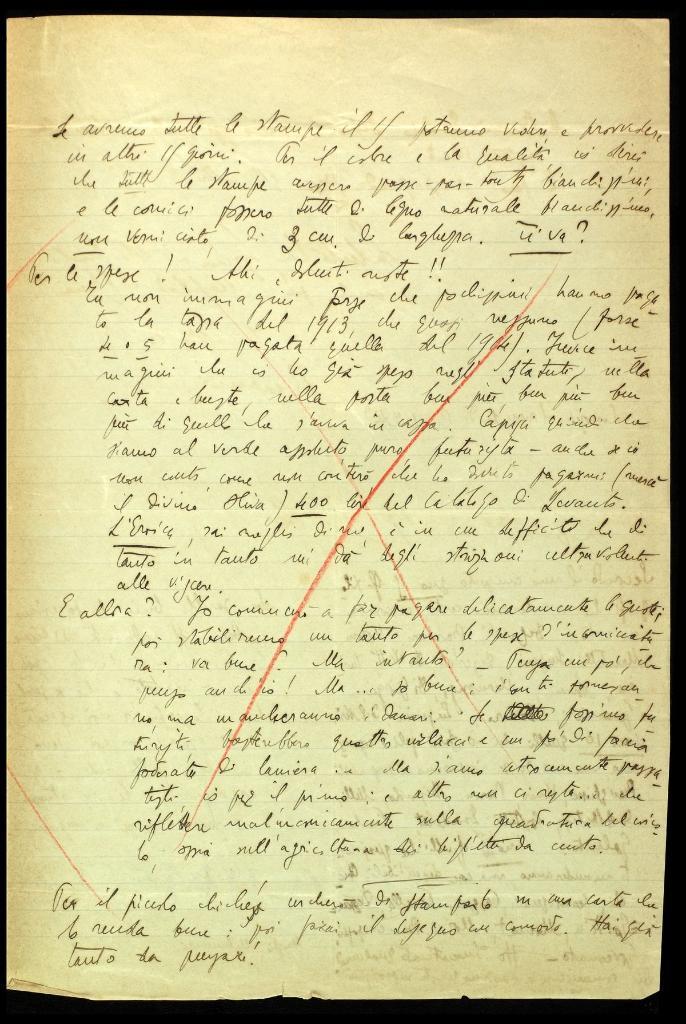 Se avremo tutte le stampe il 15 potremo vedere e provvedere
in altri 15 giorni. Per il colore e la qualità, io direi
che tutte le stampe avessero passe-par-touts bianchissimi,
e le cornici fossero tutte di legno naturale bianchissimo,
non verniciato, di 3 cm. di larghezza. Ti va?
Per le spese! Ahi, dolenti note!!
Tu non immagini forse che pochissimi hanno paga
to la tassa del 1913, che quasi nessuno (forse
4 o 5 han pagata quella del 1914). Invece im
magini che io ho già speso negli Statuti, nella
carta e buste, nella posta ben più, ben più ben
più di quello che s'aveva in cassa. Capisci quindi che
siamo al verde assoluto, puro, futurista – anche se io
non conto, come non conterò, che ho dovuto pagarmi (mercè
il divino Oliva) 400 lire del Catalogo di Levanto.
L'Eroica, sai meglio di me, è in un deficit che di
tanto in tanto mi dà degli strizzoni ultraviolenti
alle viscere.
E allora? Io comincerò a far pagare delicatamente le quote;
poi stabiliremo un tanto per le spese d'incorniciatu
ra: va bene? Ma intanto? – Pensa un po', che
penso anch'io! Ma... so bene: i conti torneran
no, ma mancheranno i danari. Se fossimo fu
turisti basterebbero quattro e un pò di faccia
foderata di lamiera... Ma siamo atrocemente passa
tisti, io per il primo: e altro non ci resta... che
riflettere malinconicamente sulla quadratura del circo
lo, ossia sull'agricoltura dei biglietti da cento.
Per il piccolo clichè cercherò di stamparlo in una carta che
lo renda bene: poi farai il disegno con comodo. Hai già
tanto da pensare!